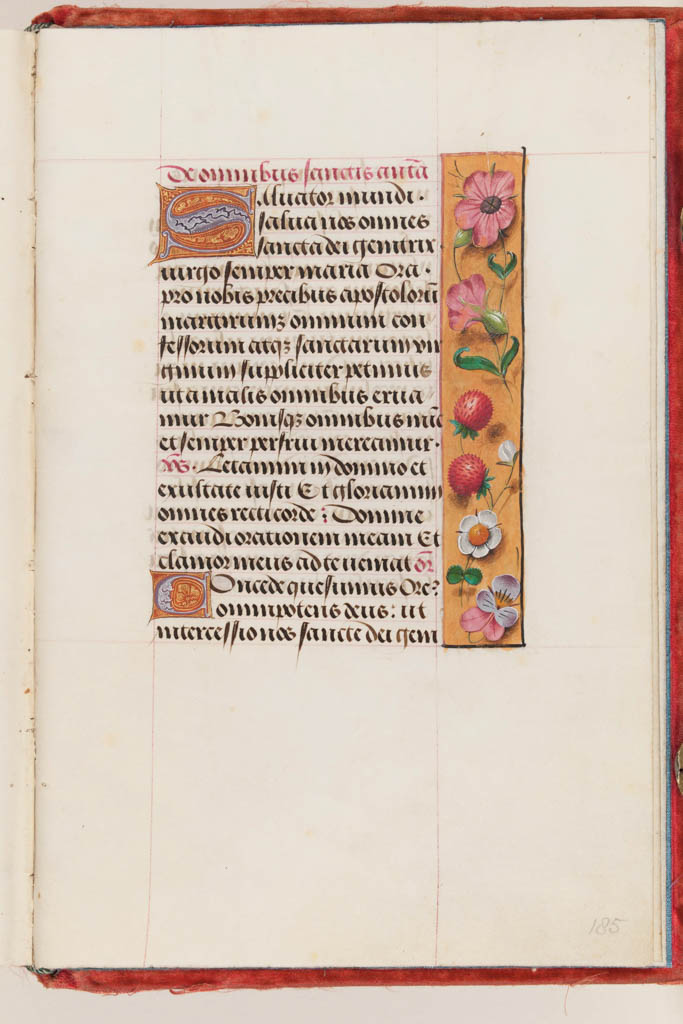 De omnibus sanctis antā
Saluator mundi ·
salua nos omnes
sancta dei genitrix
uirgo semper maria Ora ·
pro nobis precibus apostolorū
martirum⁊ omnium con
fessorum atqꝫ sanctarum vir
ginum suppliciter petimus
ut a malis omnibus erua
mur Bonisqꝫ omnibus nūc
et semper perfrui mereamur ·
V̄s · Letamini in domino et
exultate iusti Et gloriamini
omnes recti corde : Domine
exaudi orationem meam Et
clamor meus ad te ueniat or̄
Concede quesumus Ores
omnipotens deus : ut
intercessio nos sancte dei geni
185